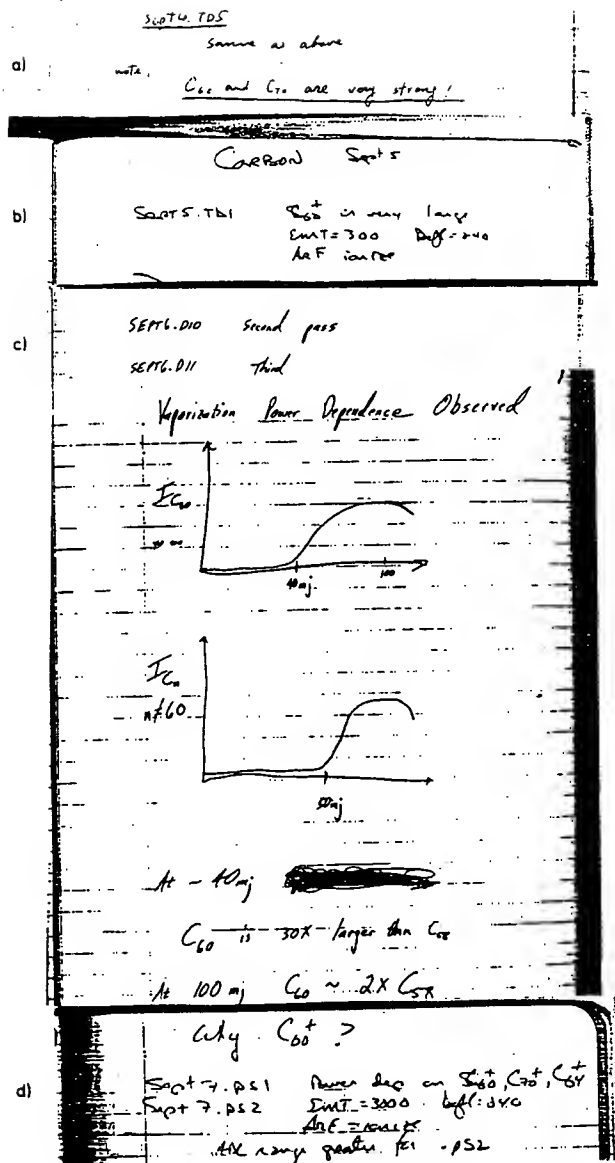 a)
Sept 4. TD5
Same as above
note,
C60 and C70 are very strong!
b)
CARBON Sept 5
SEPT5.TD1 C60+ is very large
EmT=300 Defl=240
ArF ionize
c)
SEPT6.D10 Second pass
SEPT6.D11 Third
Vaporization Power Dependence Observed
I C60
40mj 100
I Cn
n≠60
50mj
At ~40mj
C60 is 30X larger than C58
At 100 mj C60 ~ 2X C58
Why C60+ ?
d)
Sept 7.PS1 Power dep on C60+, C70+, C64+
Sept 7.PS2 EmT=3000 defl=240
ArF=ionize
range greater for .PS2